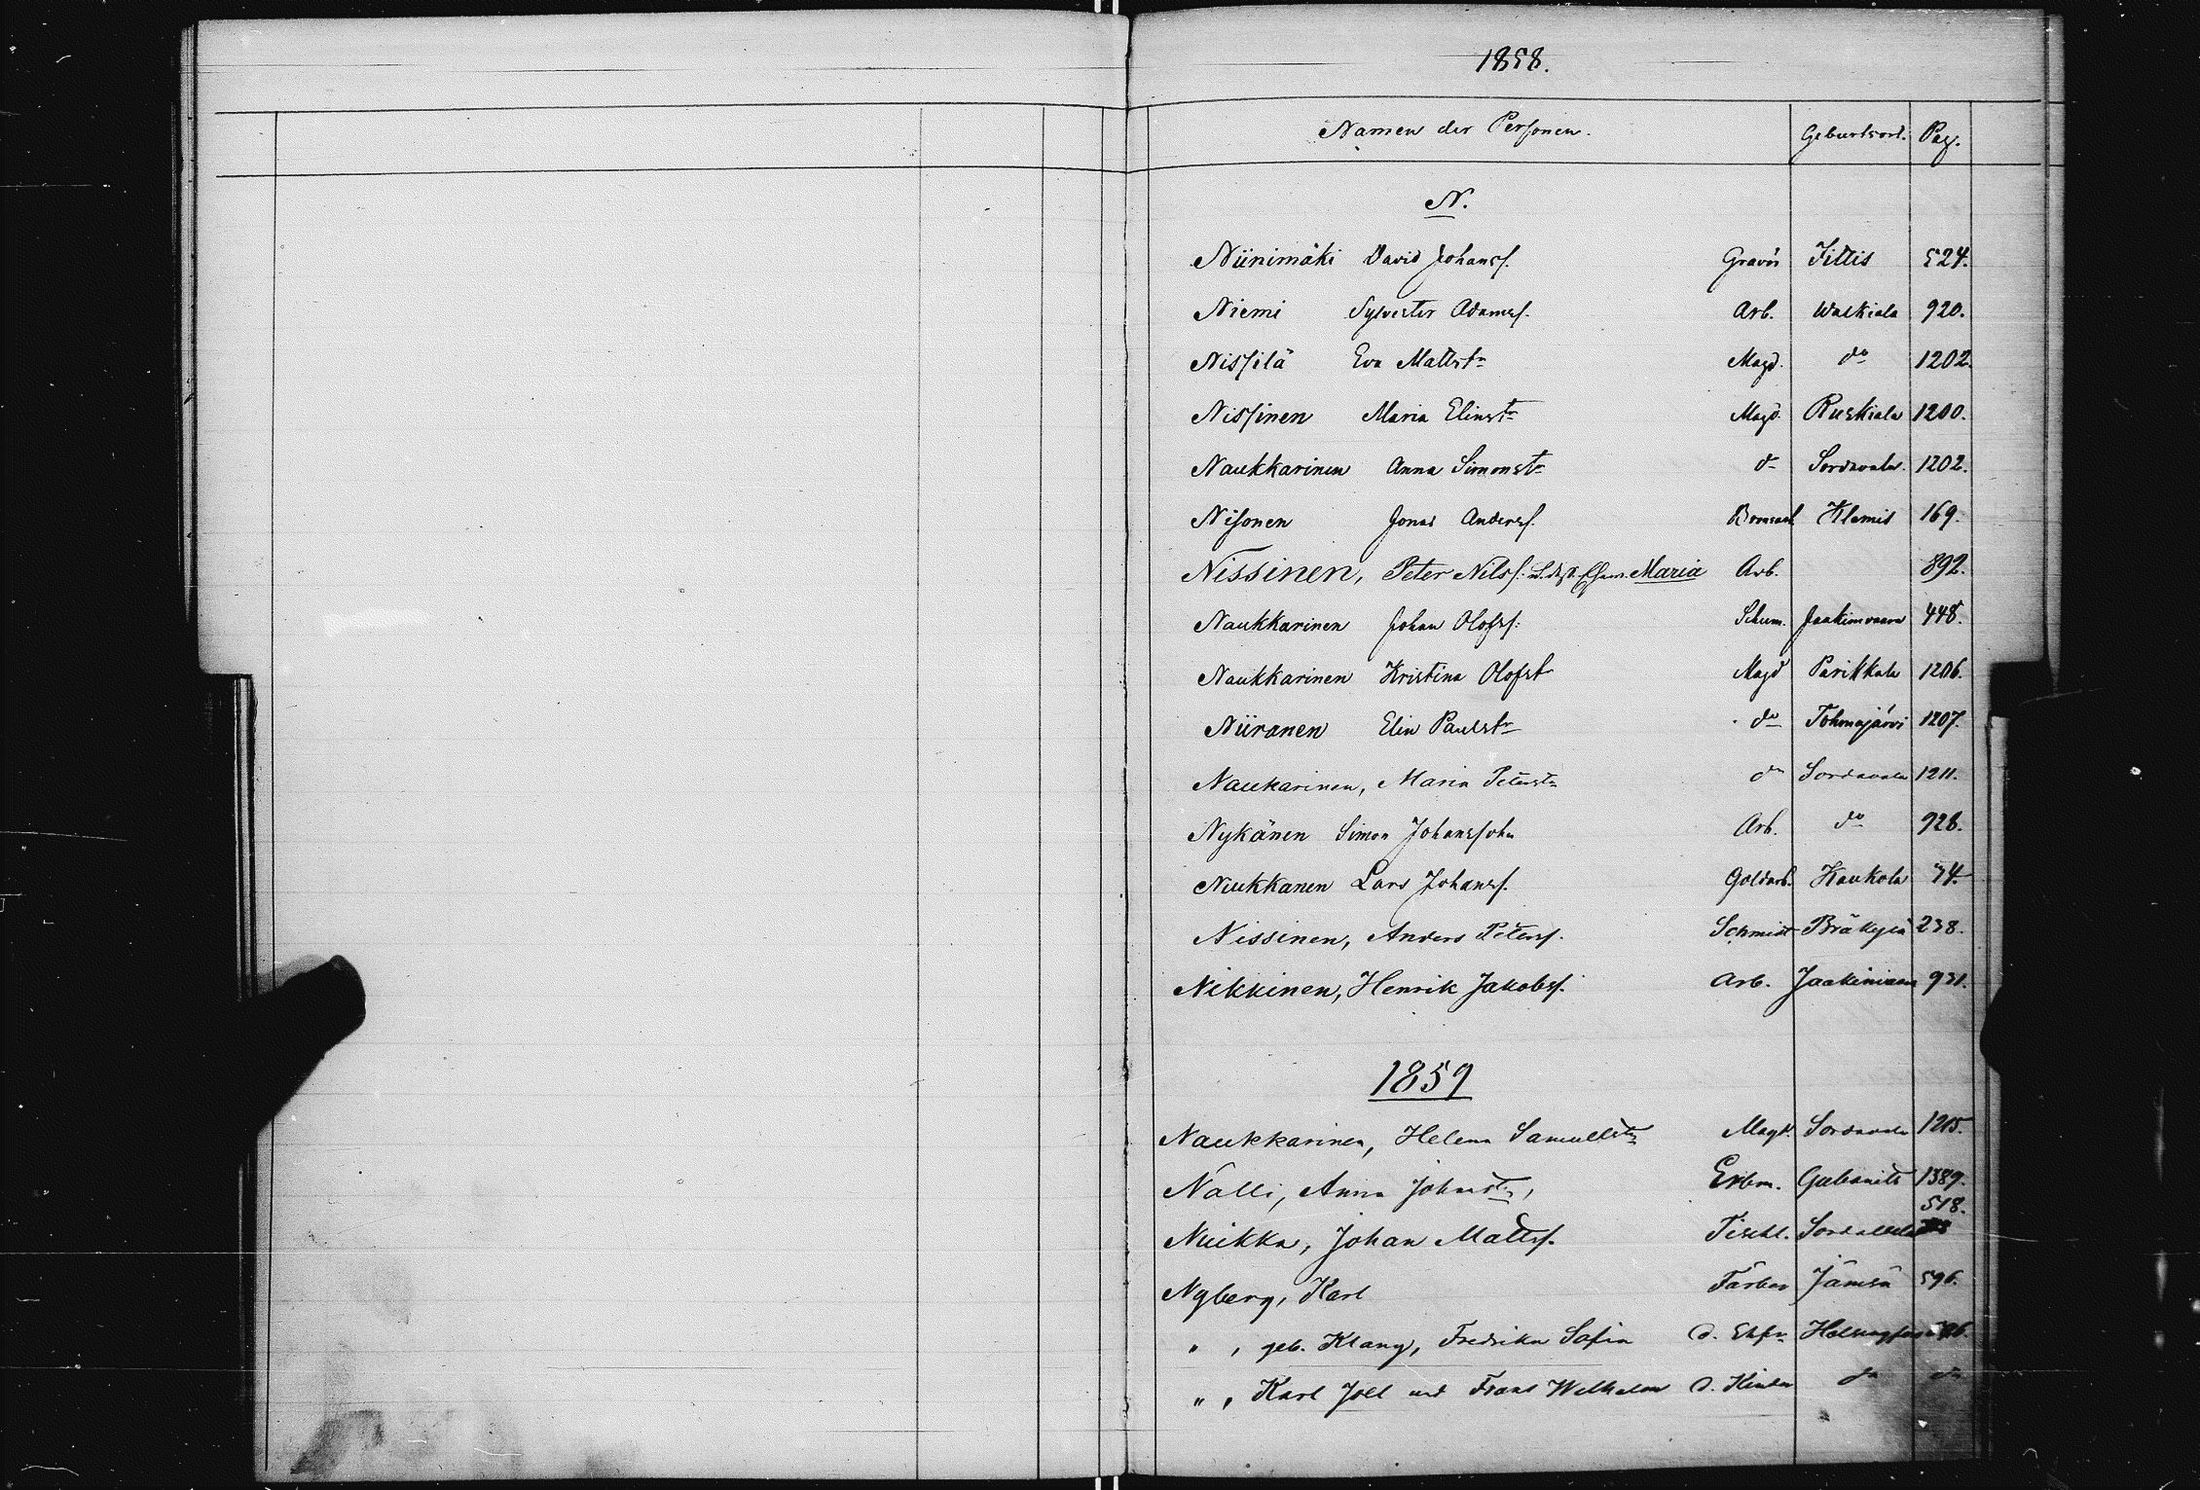 1858.
Namen der Personen. Geburtsort. Pag.
N.
Niinimäki David Johanss. Gravör Jittis 524.
Niemi Sylvester Adamss. Arb. Walkiala 920.
Nissilä Eva Mattstr Magd. do 1202.
Nissinen Maria Eliastr Magd. Ruskiala 1200.
Naukkarinen Anna Simonstr do Sordavala 1202.
Nisonen Jonas Anderss. Klemis 169.
Nissinen, Peter Nilss. Maria Arb. 892.
Naukkarinen Johan Olofss. Schum. Jaakimvaara 448.
Naukkarinen Kristina Olofstr Magd Parikkala 1206.
Niiranen Elin Paulstr do Tohmajärvi 1207.
Naukarinen, Maria Peterstr do Sordavala 1211.
Nykänen Simon Johanssohn Arb. do 928.
Niukkanen Lars Johanss. Goldarb. Kaukola 74.
Nissinen, Anders Peterss. Schmidt Bräkylä 238.
Nikkinen, Henrik Jakobss. Arb. Jaakimvaara 931.
1859
Naukkarinen, Helena Samuelstr Magd. Sordavala 1215.
Nälli, Anna Johanstr, Erbm. 1389.
518.
Nuikka, Johan Matts. Tischl. Sordavala
Nyberg, Karl Färber Jämsä 596.
" , geb. Klang, Fredrika Sofia d. Ehfr. Helsingfors 596.
" , Karl Joel und Frans Wilhelm d. Kinder do do